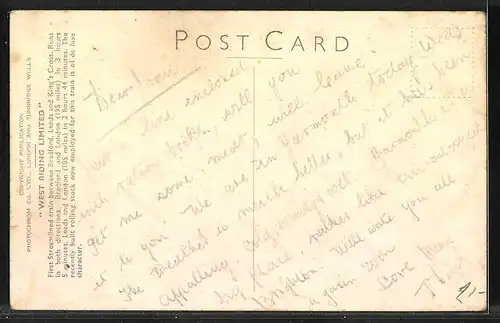 POST CARD
COPYRIGHT PUBLICATION
PHOTOCHROM CO. LTD., LONDON AND TUNBRIDGE WELLS
"WEST RIDING LIMITED"
First Streamlined train between Bradford, Leeds and King's Cross. Runs
in both directions. Bradford and London (195 miles) in 3 hours
5 minutes, Leeds and London (185 miles) in 2 hours 44 minutes. The
recently built rolling stock now employed for this train is of de luxe
character.
Dear
enclosed
with ration books, will you
get me some meat? I will leave
it to you. We are in Barmouth today, Weds
The weather is much better but it has been
appalling, cold, windy & wet. Barmouth is a
big place, rather like an out-sized
Brighton. Will write to you all
again soon
Love from